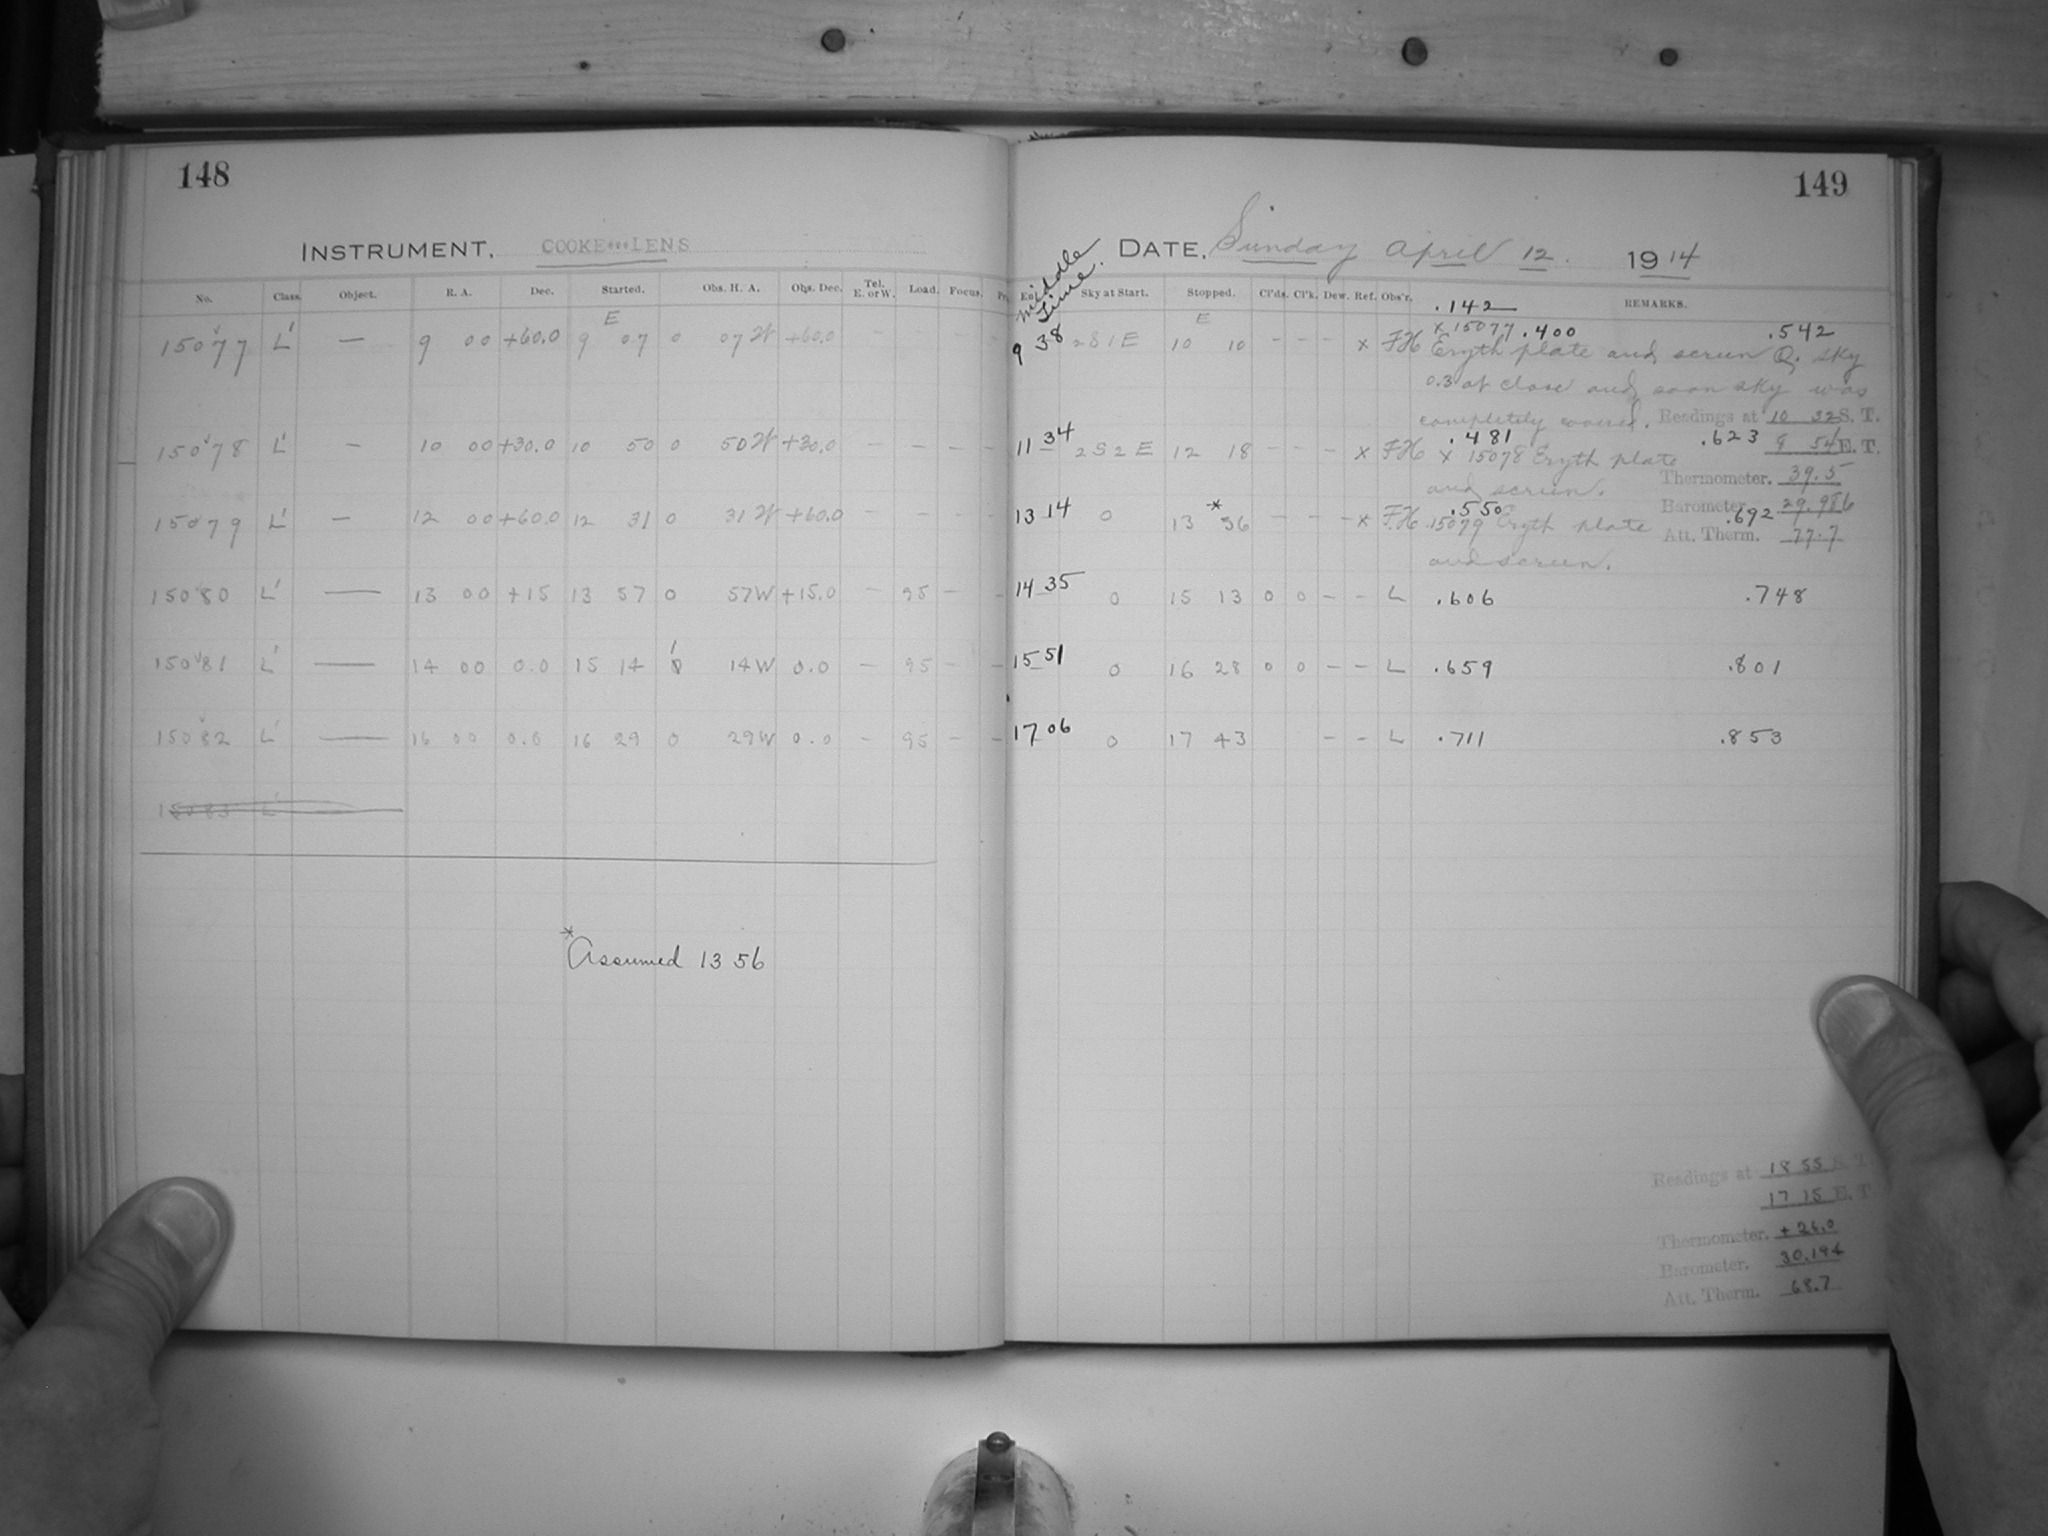 148
INSTRUMENT, COOKE LENS
No. Class. Object. R. A. Dec. Started. Obs. H. A. Obs. Dec. Tel. E. or W. Load. Focus.
E
15077 L' — 9 00 +60.0 9 07 0 07 W +60.0 —
15078 L' — 10 00 +30.0 10 50 0 50 W +30.0 — — — —
15079 L' — 12 00 +60.0 12 31 0 31 W +60.0 — — — —
15080 L' — 13 00 +15 13 57 0 57W +15.0 — 95 — -
15081 L' — 14 00 0.0 15 14 1 14W 0.0 — 95 — -
15082 L' — 16 00 0.0 16 29 0 29W 0.0 - 95 - -
15083 L'
* Assumed 13 56
149
DATE, Sunday April 12. 1914
Middle Time.
Sky at Start. Stopped. Cl'ds. Cl'k. Dew. Ref. Obs'r. REMARKS.
.142
E × 15077 .400 .542
9 38 2S1E 10 10 - - - × FH Eryth plate and screen Q. sky
0.3 at close and soon sky was
completely covered. Readings at 10 32 S. T.
.481 .623 8 54 E. T.
11 34 2S2E 12 18 - - - × FH × 15078 Eryth plate
and screen. Thermometer. 39.5
.550 Barometer. 29.986
13 14 0 13 *56 - - - × FH 15079 Eryth plate .692
and screen. Att. Therm. 77.7
14 35 0 15 13 0 0 - - L .606 .748
15 51 0 16 28 0 0 - - L .659 .801
17 06 0 17 43 - - L .711 .853
Readings at 18 55 S. T.
17 15 E. T.
Thermometer. +26.0
Barometer. 30.194
Att. Therm. 68.7